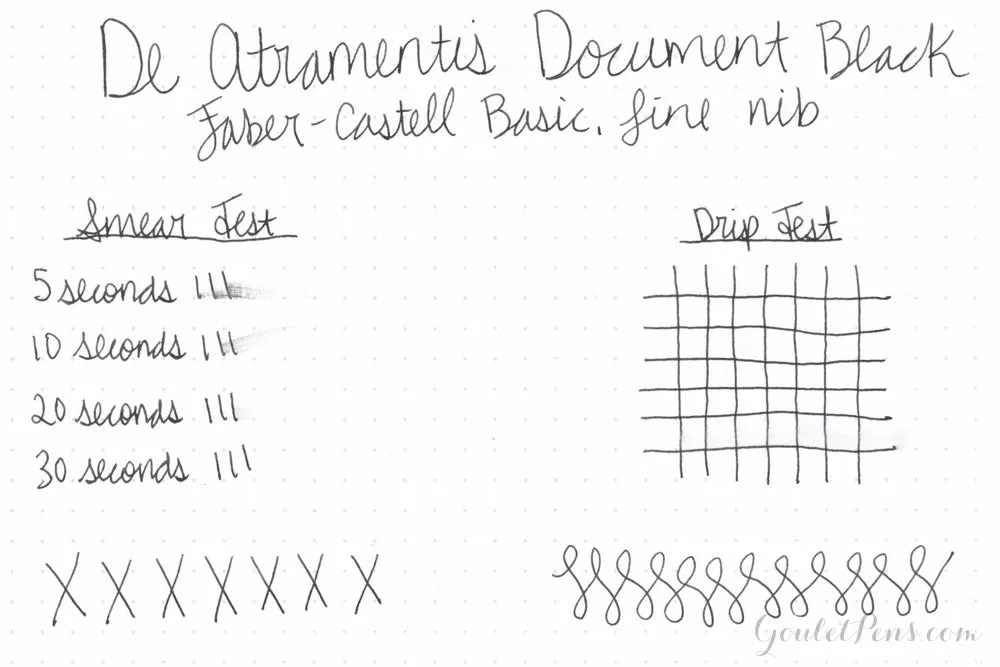 De Atramentis Document Black
Faber-Castell Basic, fine nib
Smear Test
5 seconds III
10 seconds III
20 seconds III
30 seconds III
X X X X X X X
Drip Test
GouletPens.com